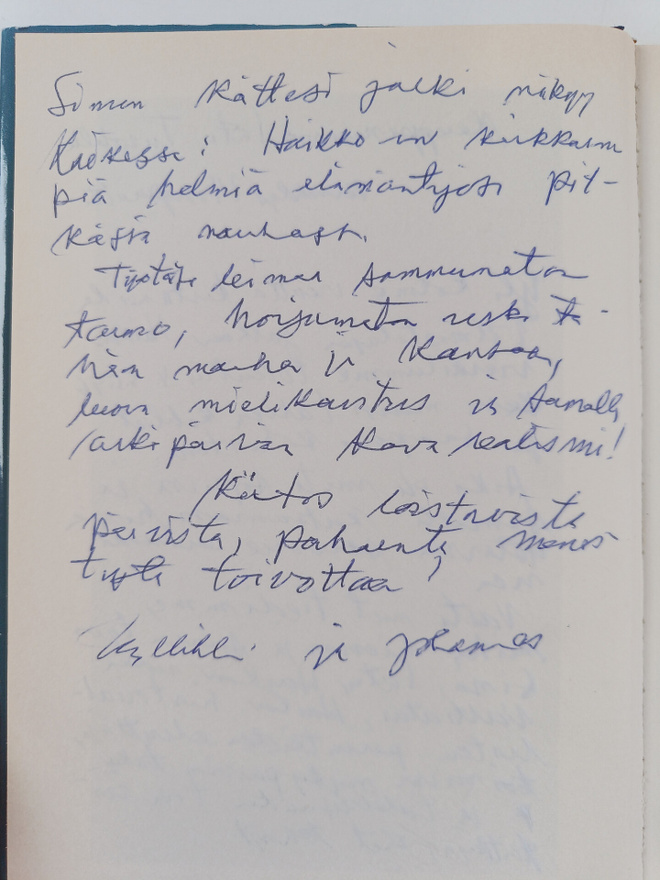 Sinun kättesi jälki näkyy
Haikko on kirkkaim
piä helmiä elämäntyösi pit-
kästä nauhasta.
Työtäsi leimaa sammumaton
tarmo, horjumaton usko tä-
hän maaha ja kansaa,
luova mielikuvitus ja samalla
arkipäivän kova realismi!
Kiitos loistavista
päivistä, parhainta menes
tystä toivottaa
Kyllikki ja Johannes